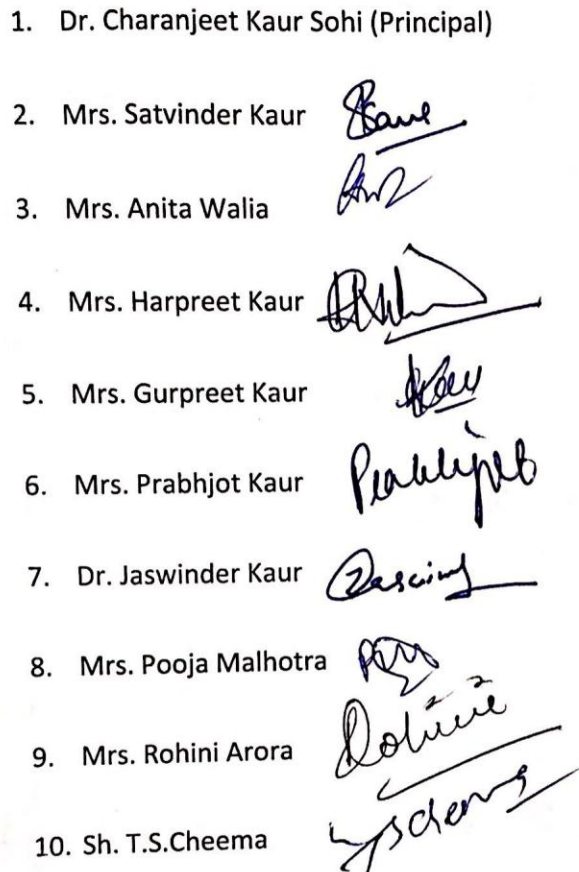 1. Dr. Charanjeet Kaur Sohi (Principal)
2. Mrs. Satvinder Kaur
3. Mrs. Anita Walia
4. Mrs. Harpreet Kaur
5. Mrs. Gurpreet Kaur
6. Mrs. Prabhjot Kaur Prabhjot
7. Dr. Jaswinder Kaur
8. Mrs. Pooja Malhotra
9. Mrs. Rohini Arora Rohini
10. Sh. T.S.Cheema TScheema